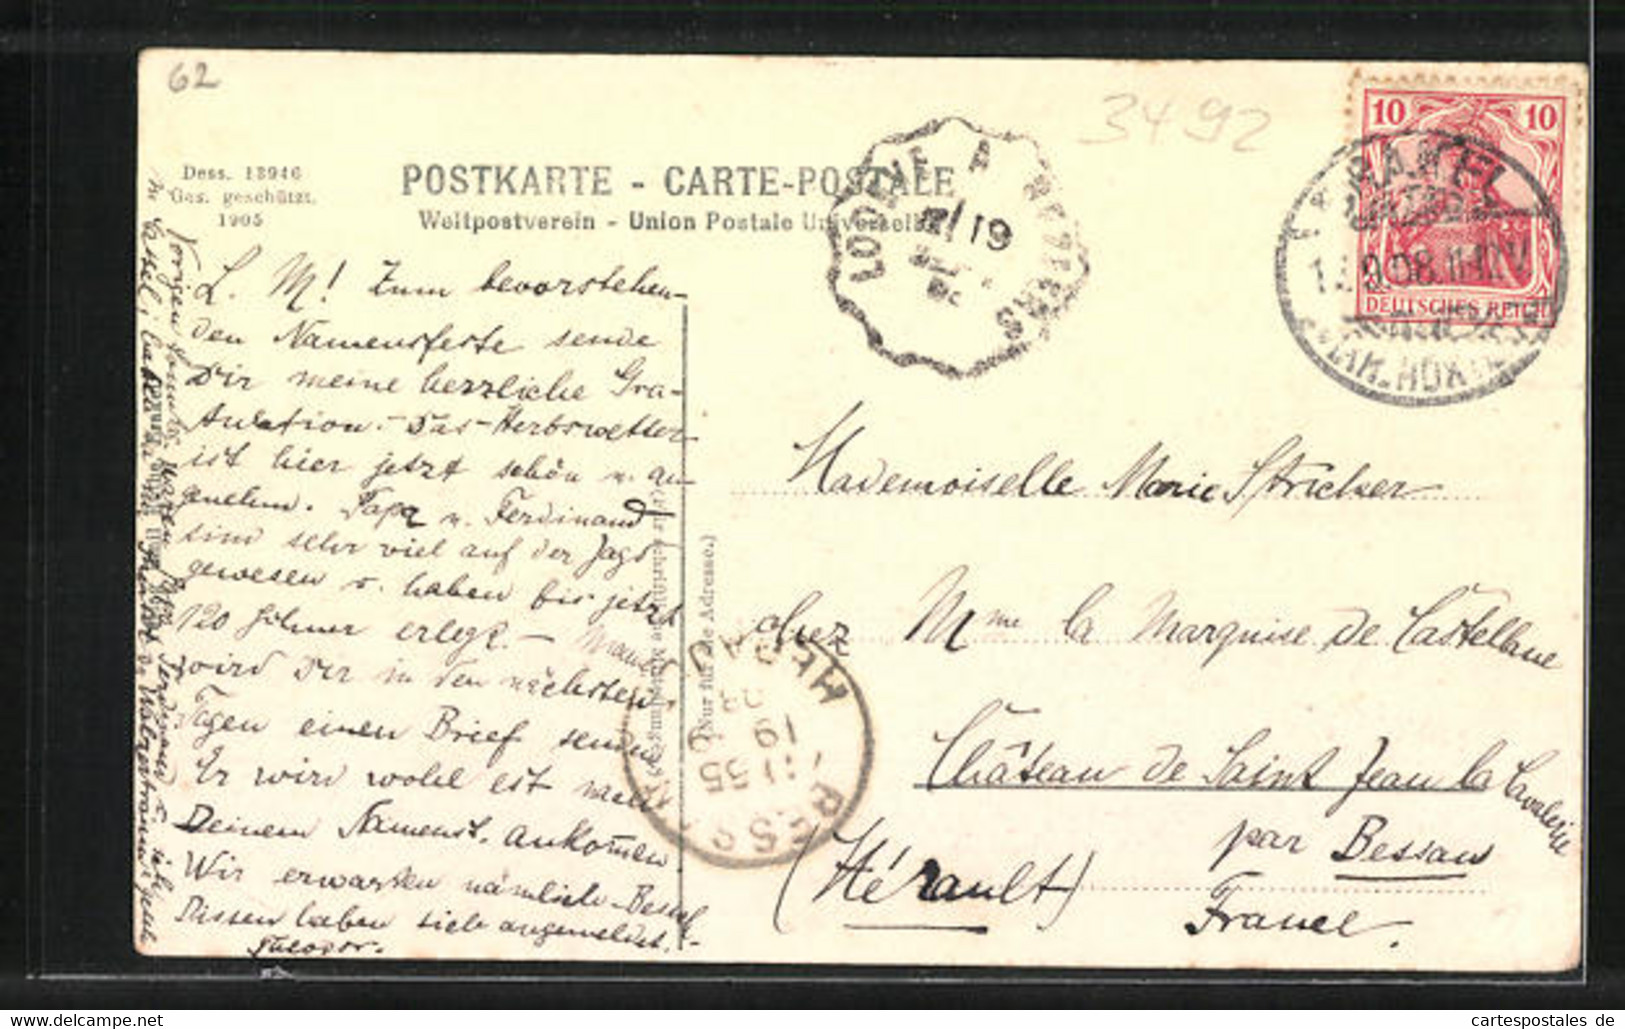 62
3492
Dess. 13946
Ges. geschützt.
1905
POSTKARTE - CARTE-POSTALE
Weltpostverein - Union Postale Universelle
10 10
DEUTSCHES REICH
LODÈVE
19
BESSAN
HÉRAULT
11 55
19
08
L. M! Zum bevorstehen-
den Namensfeste sende
Dir meine herzliche Gra-
tulation. - Das Herbswetter
ist hier jetzt schön u. an
genehm. Papa u. Ferdinand
sind sehr viel auf der Jagd
gewesen u. haben bis jetzt
120 Hühner erlegt. - Mama
wird Dir in den nächsten
Tagen einen Brief senden
Er wird wohl erst nach
Deinem Namenst. ankom̄en
Wir erwarten nämlich Besuch
haben sich angemeldet. -
Theodor.
Vorigen Sonntag waren Ferdinand u. ich
in
(Nur für die Adresse.)
Mademoiselle Marie Stricker
chez Mme la Marquise de Castellane
Château de Saint Jean la Cavalerie
par Bessan
(Hérault)
France.
Ansichtskarten-Center Onlineshop
cartespostales.de